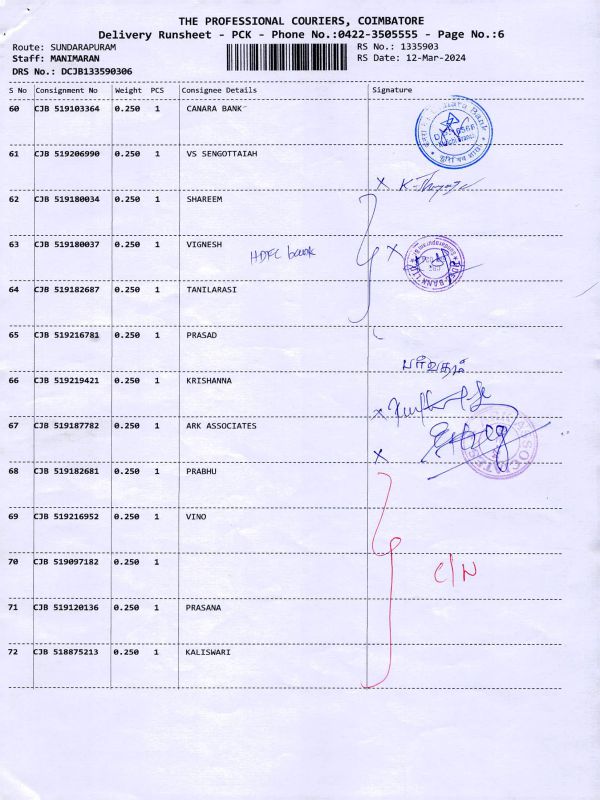 THE PROFESSIONAL COURIERS, COIMBATORE
Delivery Runsheet - PCK - Phone No.:0422-3505555 - Page No.:6
Route: SUNDARAPURAM RS No.: 1335903
Staff: MANIMARAN RS Date: 12-Mar-2024
DRS No.: DCJB133590306
S No Consignment No Weight PCS Consignee Details Signature
60 CJB 519103364 0.250 1 CANARA BANK
61 CJB 519206990 0.250 1 VS SENGOTTAIAH
62 CJB 519180034 0.250 1 SHAREEM
63 CJB 519180037 0.250 1 VIGNESH
HDFC bank
64 CJB 519182687 0.250 1 TANILARASI
65 CJB 519216781 0.250 1 PRASAD
66 CJB 519219421 0.250 1 KRISHANNA
67 CJB 519187782 0.250 1 ARK ASSOCIATES
68 CJB 519182681 0.250 1 PRABHU
69 CJB 519216952 0.250 1 VINO
70 CJB 519097182 0.250 1
C/N
71 CJB 519120136 0.250 1 PRASANA
72 CJB 518875213 0.250 1 KALISWARI